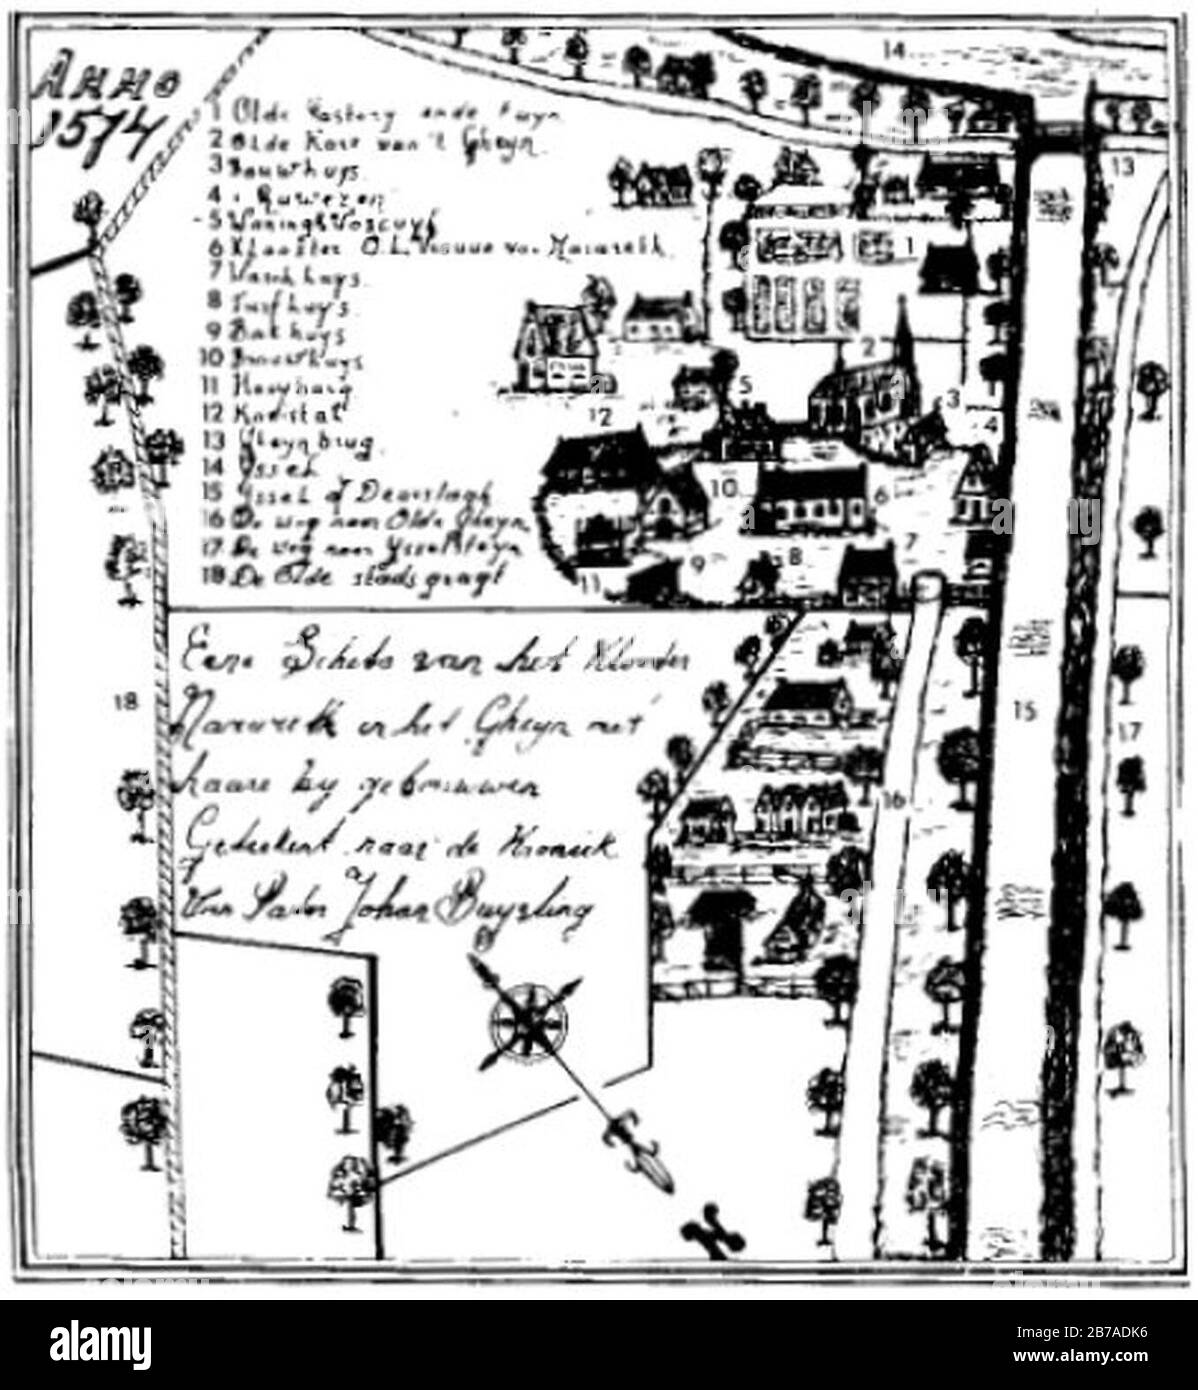 Anno
1574
1 Olde Pastory ende Tuyn
2 Olde Kore van 't Gheyn
3 Bouwhuys
4
5 Woningh Voscuyl
6 Klooster O.L. Vrouwe van Nazareth
7 Waschhuys
8 Turfhuys
9 Bakhuys
10 Brouwhuys
11 Hooyberg
12 Koestal
13 Gheynbrug
14 Yssel
15 Yssel of Doorslagh
16 De weg naar Olde Gheyn
17 De weg naar Ysselsteyn
18 De Olde stadsgragt
Eene Schets van het Klooster
Nazareth in het Gheyn met
haare by gebouwen
Getekent naar de Kroniek
Van Pater Johan Buyrling
14
13
1
2
3
4
5
12
10
6
7
8
9
11
18
15
17
16
N
alamy
Image ID: 2B7ADK6
www.alamy.com